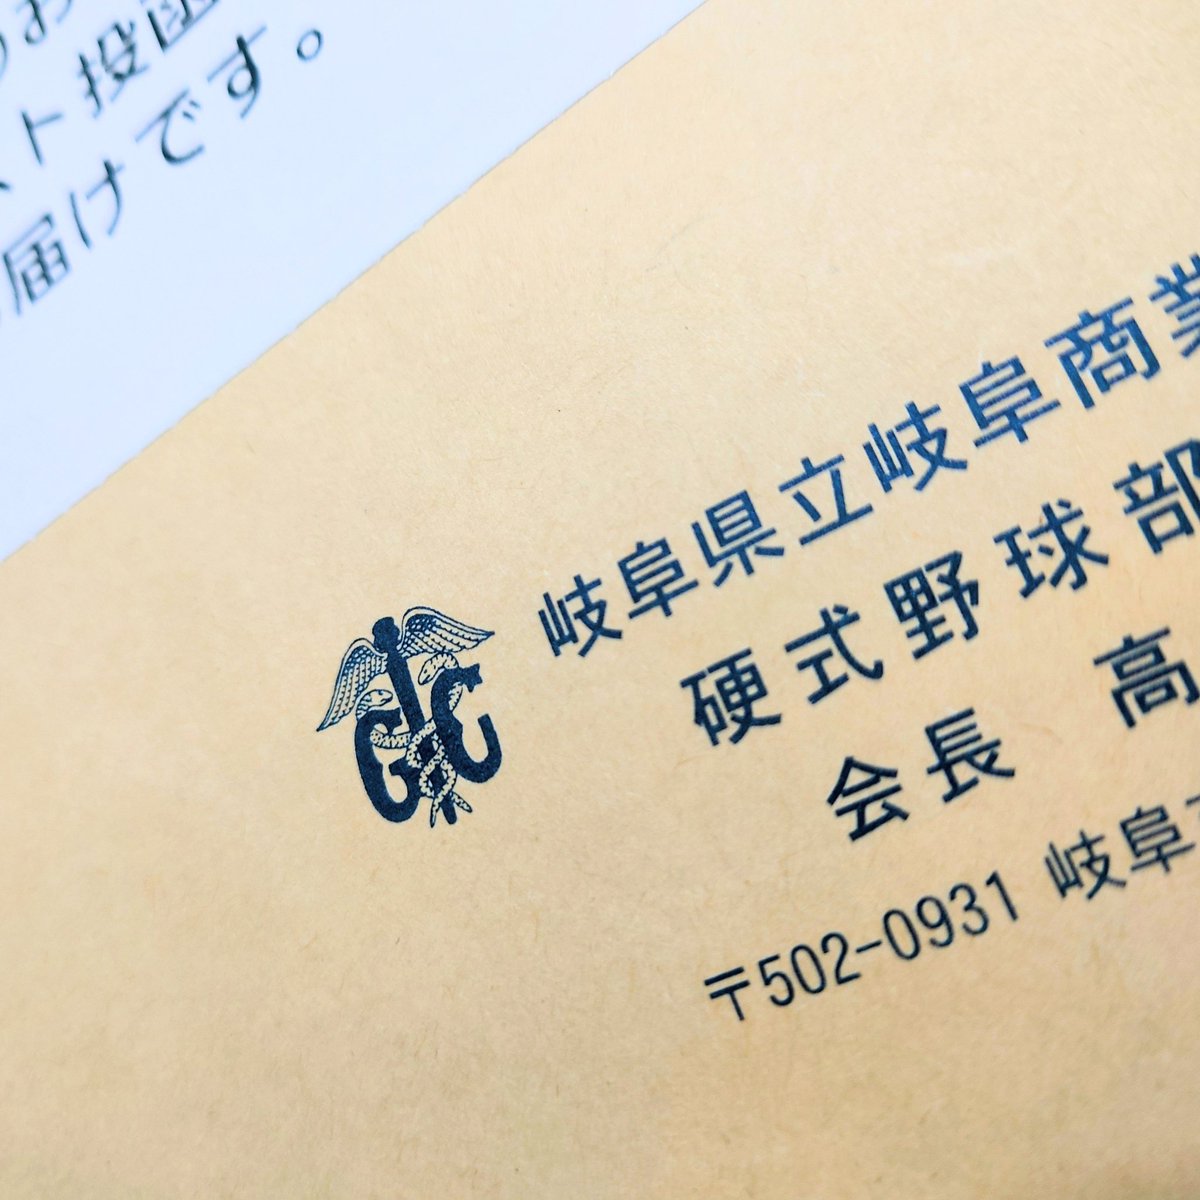 のお
スト投函
お届けです。
岐阜県立岐阜商業
硬式野球部
会長 高
〒502-0931 岐阜市
GC